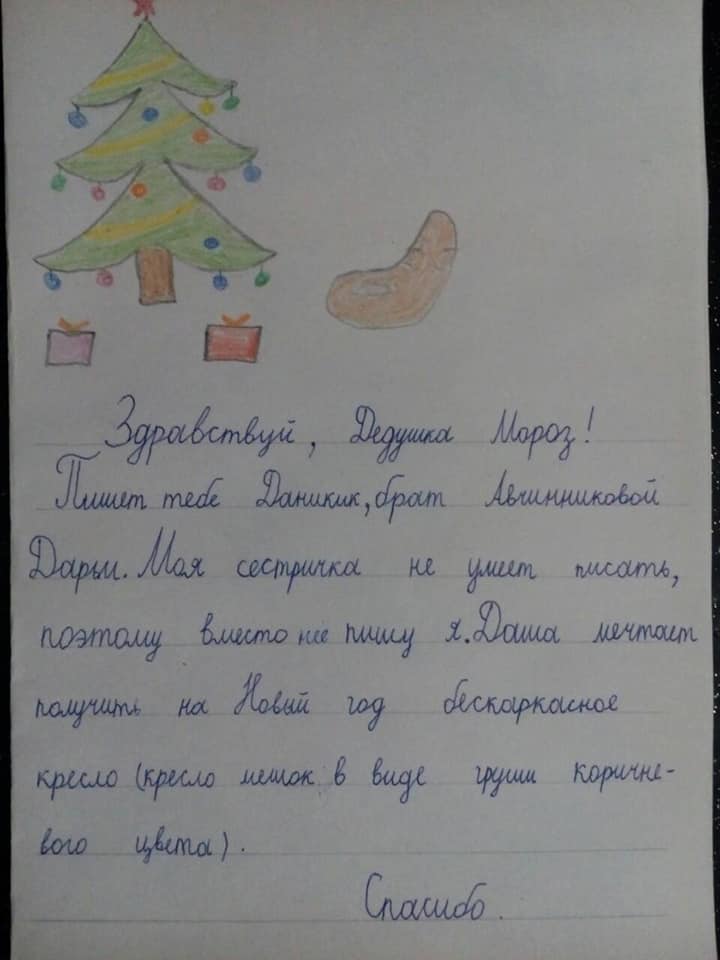 Здравствуй, Дедушка Мороз!
Пишет тебе Даникик, брат Авчинниковой
Дарьи. Моя сестричка не умеет писать,
поэтому вместо неё пишу я. Даша мечтает
получить на Новый год бескаркасное
кресло (кресло мешок в виде груши коричне-
вого цвета).
Спасибо.